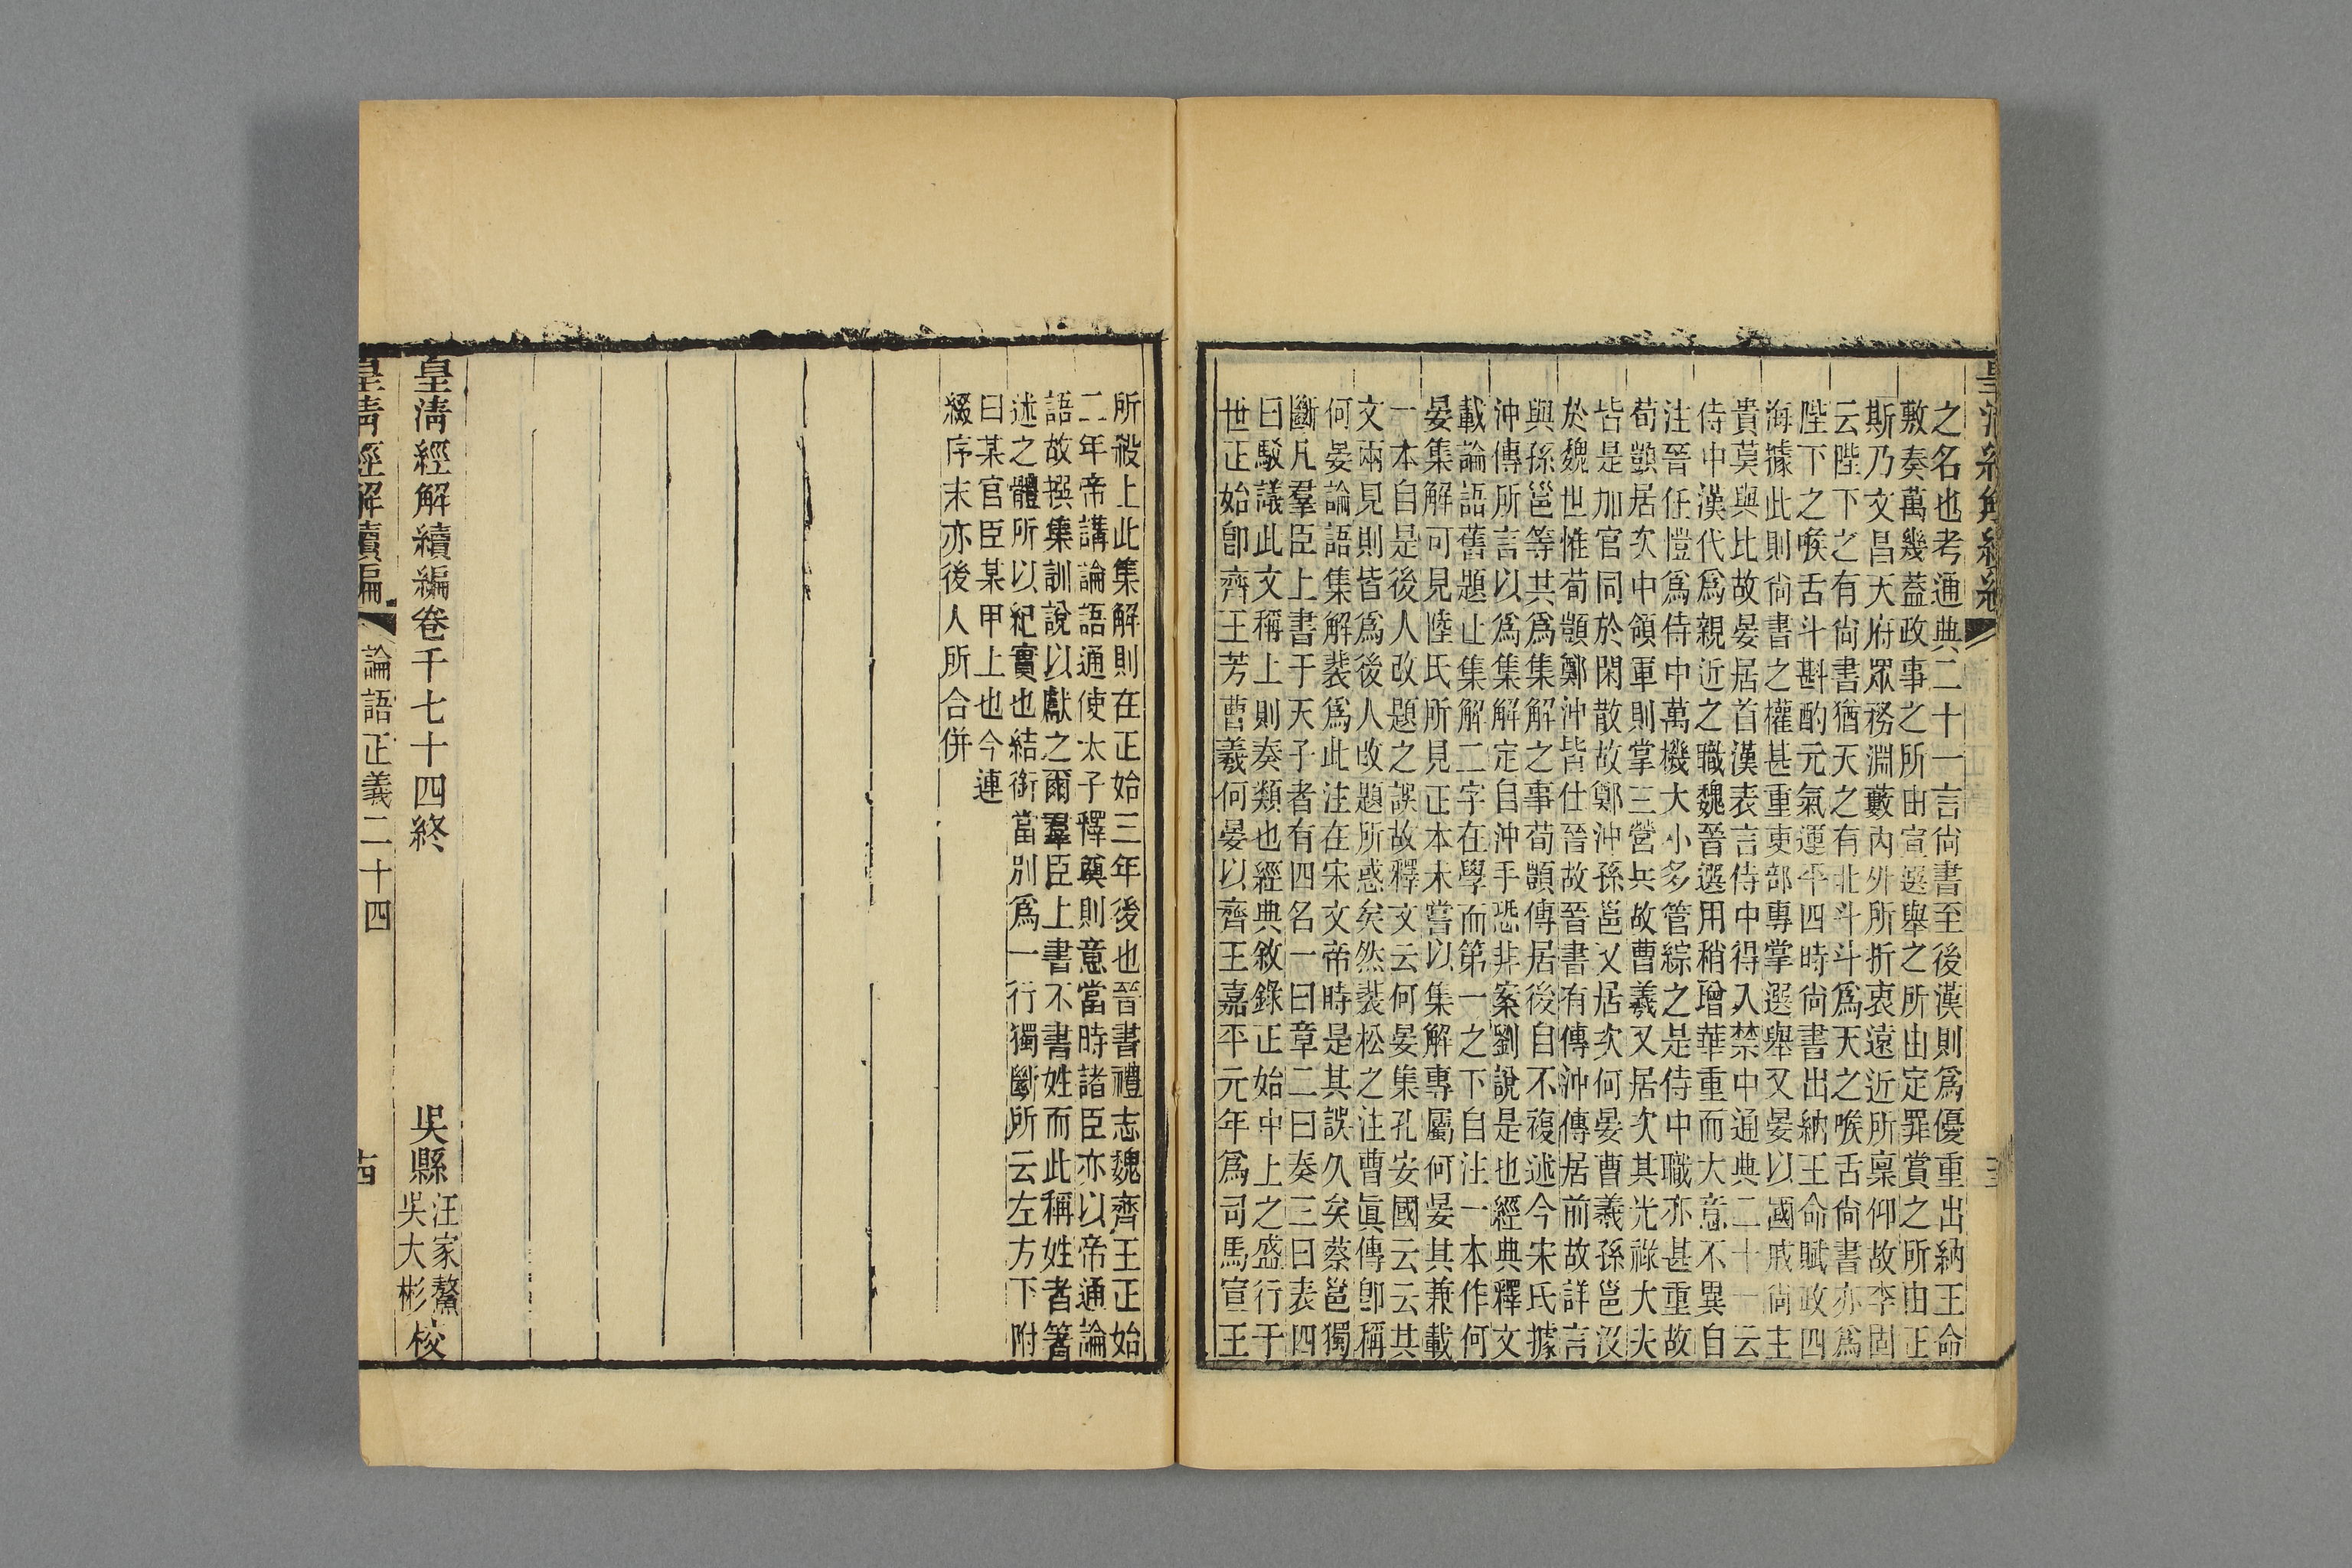 之名也考通典二十一言尚書至後漢則爲優重出納王命
敷奏萬幾蓋政事之所由宣選舉之所由定罪賞之所由正
斯乃文昌天府眾務淵藪內外所折衷遠近所稟仰故李固
云陛下之有尚書猶天之有北斗斗爲天之喉舌尚書亦爲
陛下之喉舌斗斟酌元氣運平四時尚書出納王命賦政四
海據此則尚書之權甚重吏部專掌選舉又晏以國戚尚主
貴莫與比故晏居首漢表言侍中得入禁中通典二十一云
侍中漢代爲親近之職魏晉選用稍增華重而大意不異自
注晉任愷爲侍中萬機大小多管綜之是侍中職亦甚重故
荀顗居次中領軍則掌三營兵故曹羲又居次其光祿大夫
皆是加官同於閑散故鄭沖孫邕又居次何晏曹羲孫邕沒
於魏世惟荀顗鄭沖皆仕晉故晉書有傳沖傳居前故詳言
與孫邕等共爲集解之事荀顗傳居後自不複述今宋氏據
沖傳所言以爲集解定自沖手恐非案劉說是也經典釋文
載論語舊題止集解二字在學而第一之下自注一本作何
晏集解可見陸氏所見正本未嘗以集解專屬何晏其兼載
一本自是後人改題之誤故釋文云何晏集孔安國云云其
文兩見則皆爲後人改題所惑矣然裴松之注曹眞傳卽稱
何晏論語集解裴爲此注在宋文帝時是其誤久矣蔡邕獨
斷凡羣臣上書于天子者有四名一曰章二曰奏三曰表四
曰駮議此文稱上則奏類也經典敘錄正始中上之盛行于
世正始卽齊王芳曹羲何晏以齊王嘉平元年爲司馬宣王
所殺上此集解則在正始三年後也晉書禮志魏齊王正始
二年帝講論語通使太子釋奠則意當時諸臣亦以帝通論
語故撰集訓說以獻之爾羣臣上書不書姓而此稱姓者箸
述之體所以紀實也結銜當別爲一行獨斷所云左方下附
曰某官臣某甲上也今連
綴序末亦後人所合併
皇清經解續編卷千七十四終
吳縣
汪家鰲
吳大彬
校
皇清經解續編
論語正義二十四